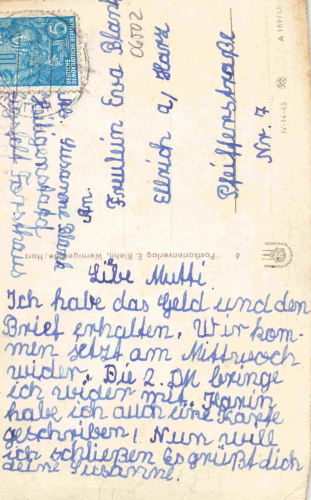 DEUTSCHE
DEMOKRATISCHE REPUBLIK
5
Abs: Susanne Blank
An
Fräulein Eva Blank
06002
Ellrich a/ Harz
Pfeifferstraße
Nr. 7
A 189/53
IV-14-45
6 Postkartenverlag E. Riehn, Wernigerode/Harz
Libe Mutti.
Ich habe das Geld und den
Brief erhalten. Wir kom-
men jetzt am Mittwoch
wider. Die 2. DM bringe
ich wider mit. Karin
habe ich auch eine Karte
geschriben! Nun will
ich schließen Es grüßt dich
deine Susanne.